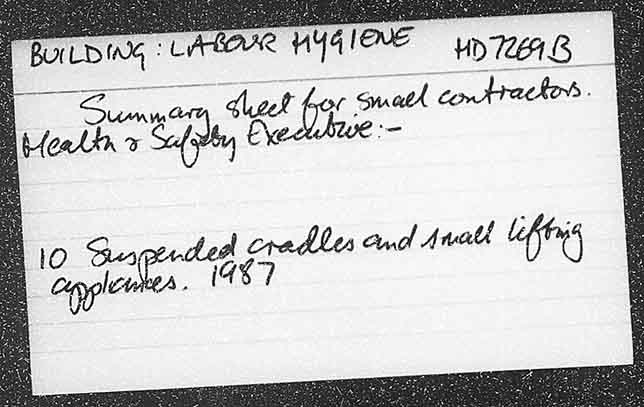 BUILDING: LABOUR HYGIENE HD7269B
Summary sheet for small contractors.
Health & Safety Executive:-
10 Suspended cradles and small lifting
appliances. 1987